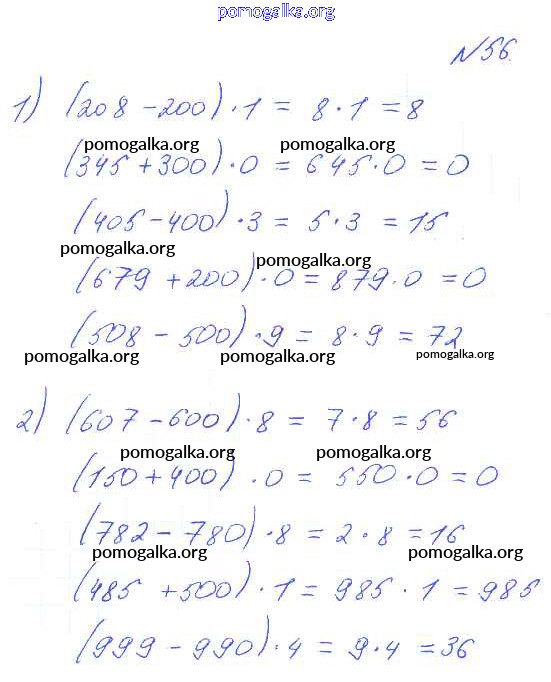 pomogalka.org
№56.
1) (208 - 200) · 1 = 8 · 1 = 8
pomogalka.org pomogalka.org
(345 + 300) · 0 = 645 · 0 = 0
(405 - 400) · 3 = 5 · 3 = 15
pomogalka.org pomogalka.org
(679 + 200) · 0 = 879 · 0 = 0
(508 - 500) · 9 = 8 · 9 = 72
pomogalka.org pomogalka.org pomogalka.org
2) (607 - 600) · 8 = 7 · 8 = 56
pomogalka.org pomogalka.org
(150 + 400) · 0 = 550 · 0 = 0
(782 - 780) · 8 = 2 · 8 = 16
pomogalka.org pomogalka.org
(485 + 500) · 1 = 985 · 1 = 985
(999 - 990) · 4 = 9 · 4 = 36